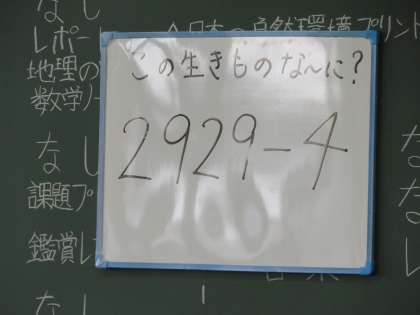 なし
レポー
プリント
地理の
数学ノー
この生きものなーに?
2929-4
なし
課題プ
鑑賞レ
なし